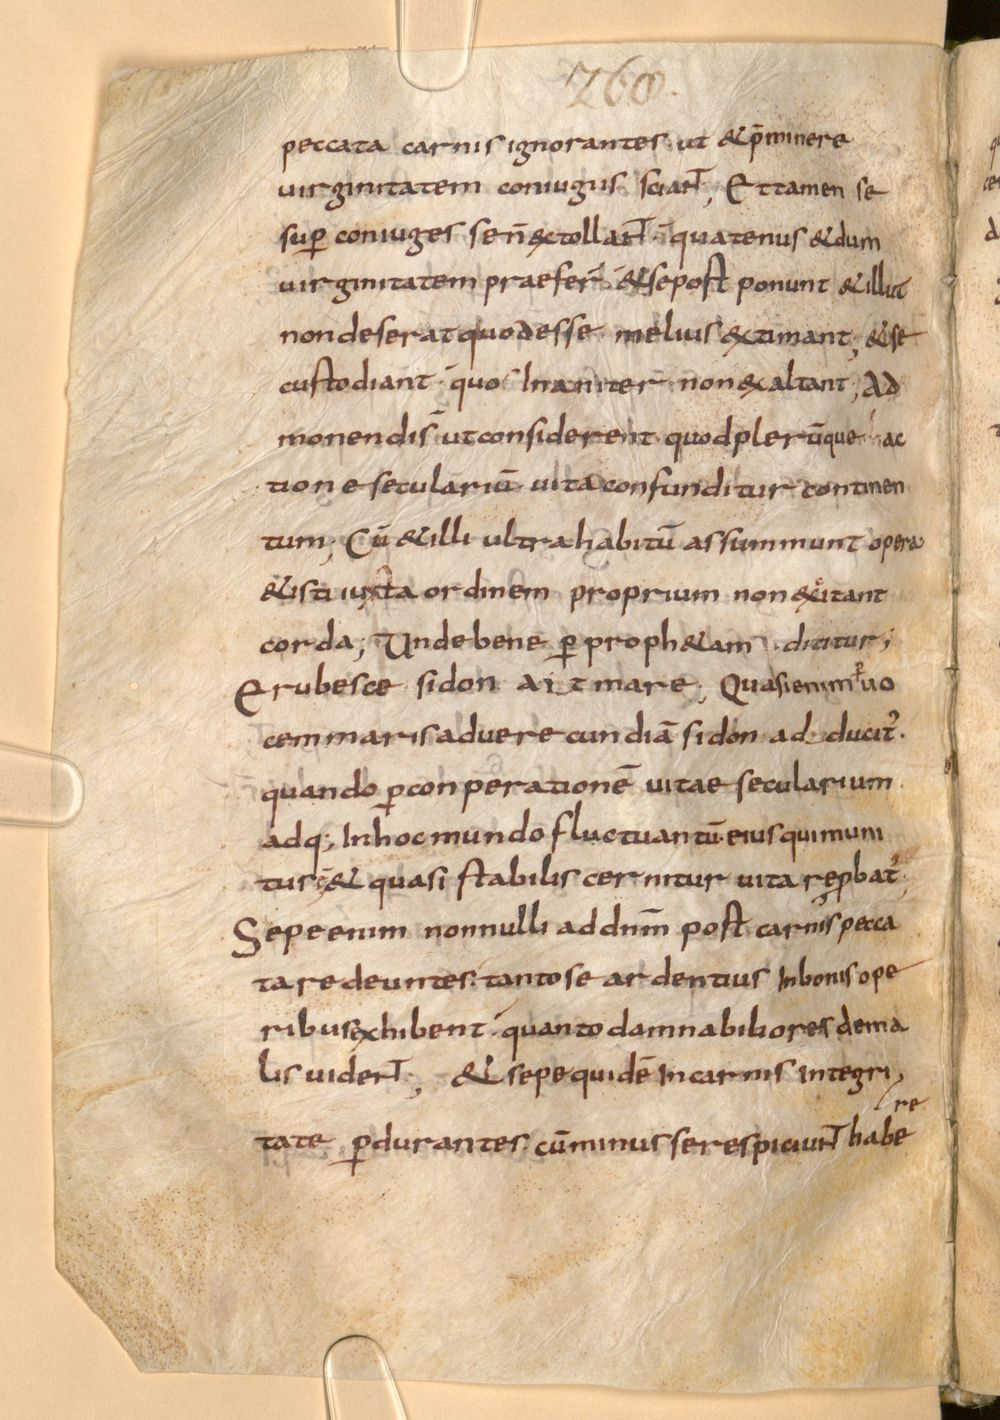 260.
peccata carnis ignorantes. ut & p̄minere
uirginitatem coniugiis sciant; Et tamen se
sup̄ coniuges se n̄ extollant. quatenus & dum
uirginitatem praefer̄t & se post ponunt & illut
non deserat quod esse melius extimant; & se
custodiant quo inaniter non exaltant; Ad
monendi s̄ ut considerent. quod plerūque ac
tione seculariū uita confunditur continen
tum; Cū & illi ultra habitū assummunt opera
& isti iuxta ordinem proprium non excitant
corda; Unde bene p̄ proph&am dicitur;
Erubesce sidon ait mare; Quasi enim p̄ uo
cem maris ad uerecundiā sidon ad ducit̄.
quando p̄ conperationē uitae secularium
adq; in hoc mundo fluctuantū. eius qui muni
tus ē & quasi stabilis cernitur uita rep̄bat̄;
Sepe enim nonnulli ad dn̄m post carnis pecca
ta redeuntes. tanto se ardentius in bonis ope
ribus exhibent. quanto damnabiliores de ma
lis uident; & sepe quidē in carnis integri
tate p̄durantes. cū minus se respiciunt habe
re